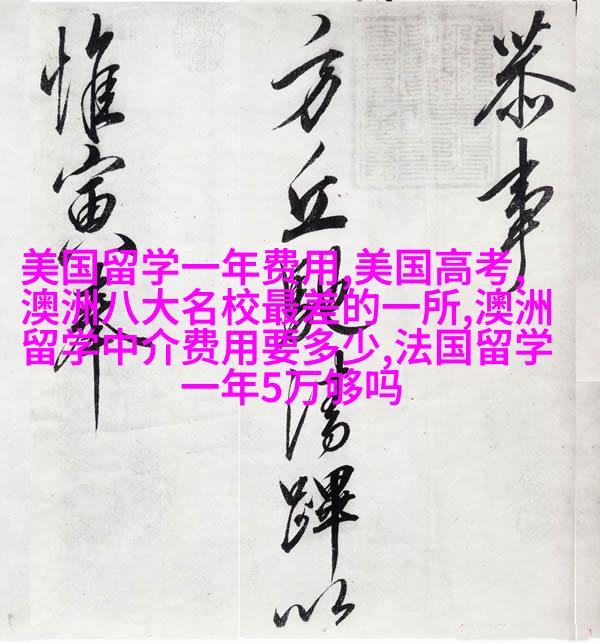 恭事
方丘馳清蹕以
惟寅奉
美国留学一年费用,美国高考,
澳洲八大名校最差的一所,澳洲
留学中介费用要多少,法国留学
一年5万够吗